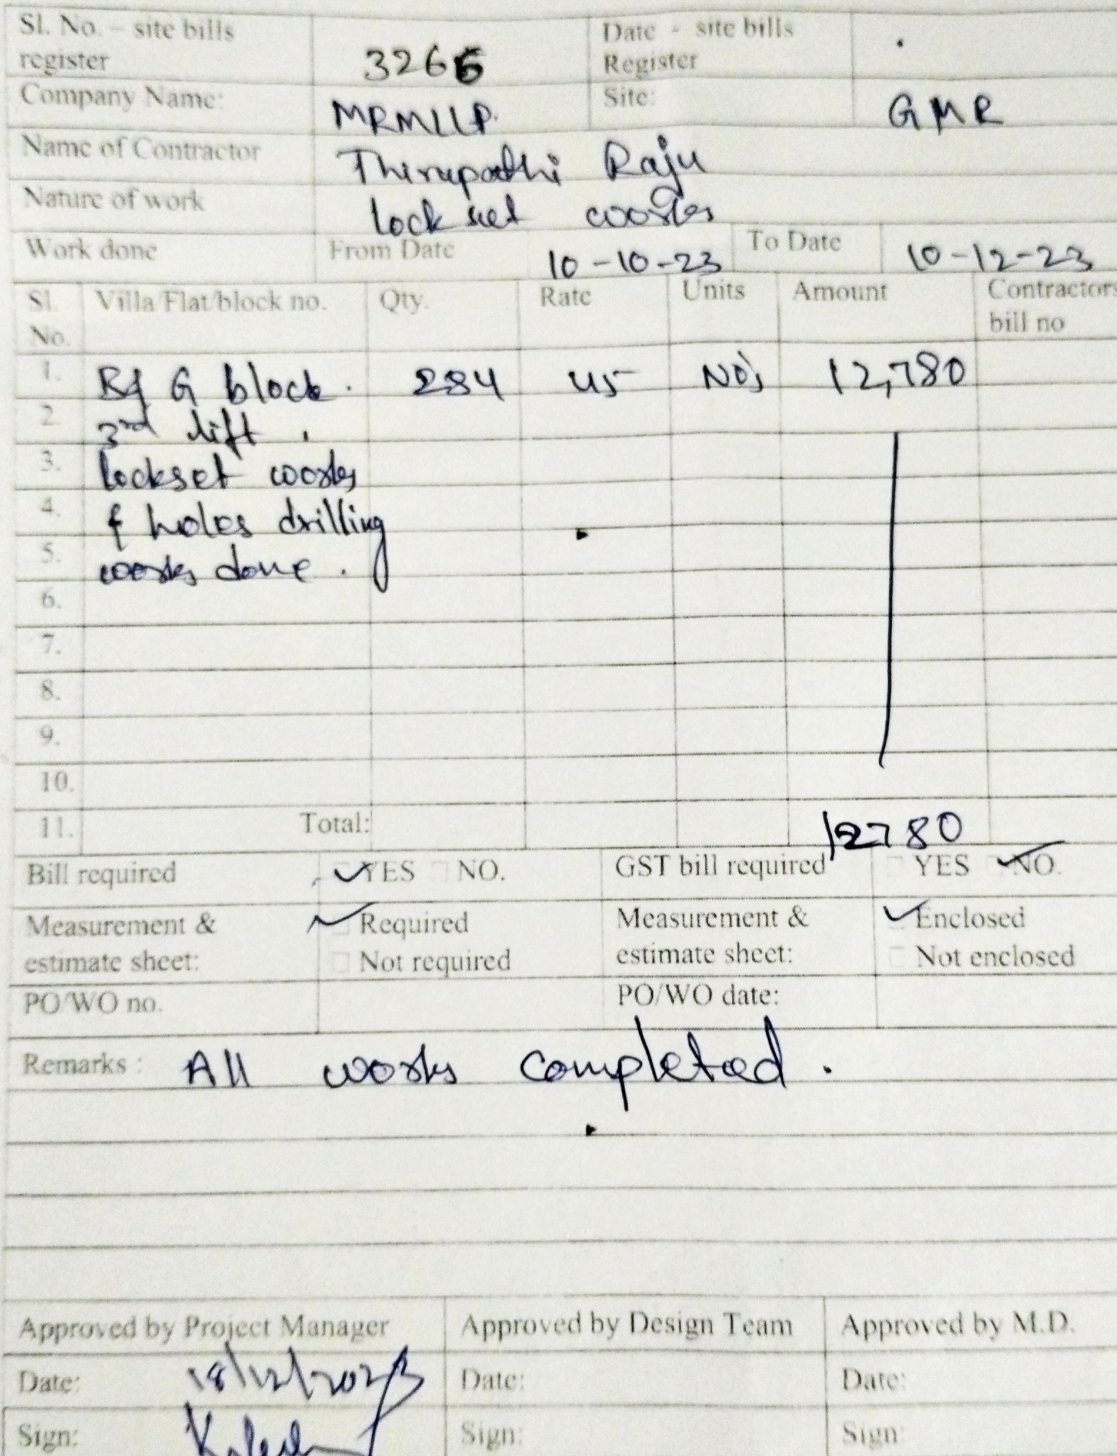 Sl. No. – site bills register 3266 Date - site bills Register
Company Name: MRMLLP. Site: GMR
Name of Contractor Thirupathi Raju
Nature of work lock set works
Work done From Date 10-10-23 To Date 10-12-23
Sl. No. Villa/Flat/block no. Qty. Rate Units Amount Contractors bill no
1. G block. 284 45 No's 12,780
2. 3rd lift.
3. lockset works
4. & holes drilling
5. works done.
6.
7.
8.
9.
10.
11. Total: 12780
Bill required YES NO. GST bill required YES NO.
Measurement & estimate sheet: Required Measurement & estimate sheet: Enclosed
Not required Not enclosed
PO/WO no. PO/WO date:
Remarks : All works completed.
Approved by Project Manager Approved by Design Team Approved by M.D.
Date: 18/12/2023 Date: Date:
Sign: Sign: Sign: